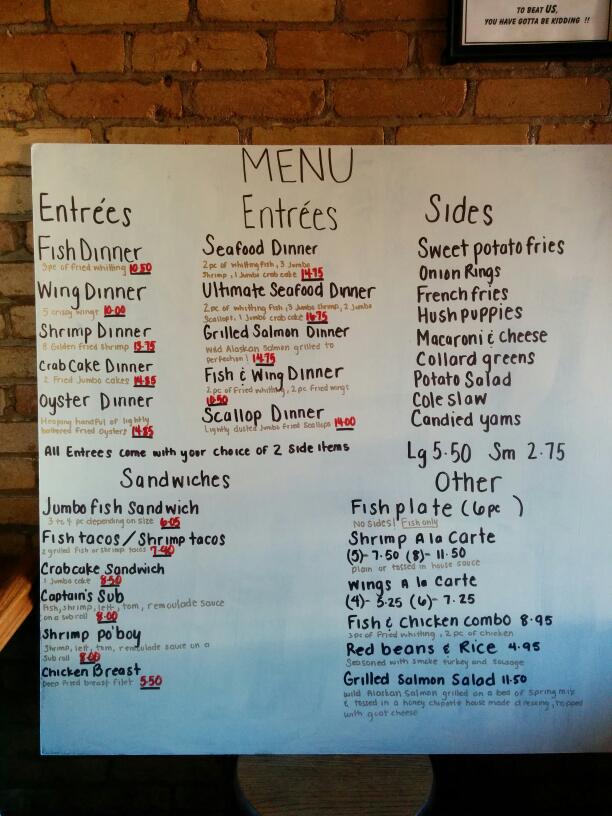 TO BEAT US,
YOU HAVE GOTTA BE KIDDING !!
MENU
Entrées
Fish Dinner
3pc of fried whiting 10.50
Wing Dinner
5 crispy wings 10.00
Shrimp Dinner
8 Golden fried shrimp 13.75
Crab Cake Dinner
2 Fried Jumbo cakes 14.85
Oyster Dinner
Heaping handful of lightly
battered fried Oysters 14.85
Entrées
Seafood Dinner
2pc of whitting fish, 3 Jumbo
Shrimp, 1 Jumbo crab cake 14.75
Ultimate Seafood Dinner
2pc of whitting fish, 3 Jumbo shrimp, 2 Jumbo
Scallops, 1 Jumbo crab cake 16.75
Grilled Salmon Dinner
Wild Alaskan Salmon grilled to
perfection! 14.75
Fish & Wing Dinner
2pc of Fried whitting, 2pc Fried wings
10.50
Scallop Dinner
Lightly dusted Jumbo fried Scallops 14.00
All Entrees come with your choice of 2 Side items
Sides
Sweet potato fries
Onion Rings
French fries
Hush puppies
Macaroni & Cheese
Collard greens
Potato Salad
Cole slaw
Candied yams
Lg 5.50 Sm 2.75
Sandwiches
Jumbo fish Sandwich
3 to 4 pc depending on size 6.05
Fish tacos/Shrimp tacos
2 grilled Fish or shrimp tacos 7.90
Crabcake Sandwich
1 Jumbo cake 8.50
Captain's Sub
Fish, shrimp, lett, tom, remoulade sauce
on a sub roll 8.00
Shrimp po'boy
Shrimp, lett, tom, remoulade sauce on a
Sub roll 8.00
Chicken Breast
Deep fried breast filet 5.50
Other
Fish plate (6pc )
No sides! Fish only
Shrimp A la Carte
(5)- 7.50 (8)- 11.50
plain or tossed in house sauce
Wings A la Carte
(4)- 5.25 (6)- 7.25
Fish & Chicken combo 8.95
3pc of Fried whitting, 2 pc of chicken
Red beans & Rice 4.95
Seasoned with smoke turkey and sausage
Grilled Salmon Salad 11.50
Wild Alaskan Salmon grilled on a bed of Spring mix
& tossed in a honey chipotle house made dressing, topped
with goat cheese